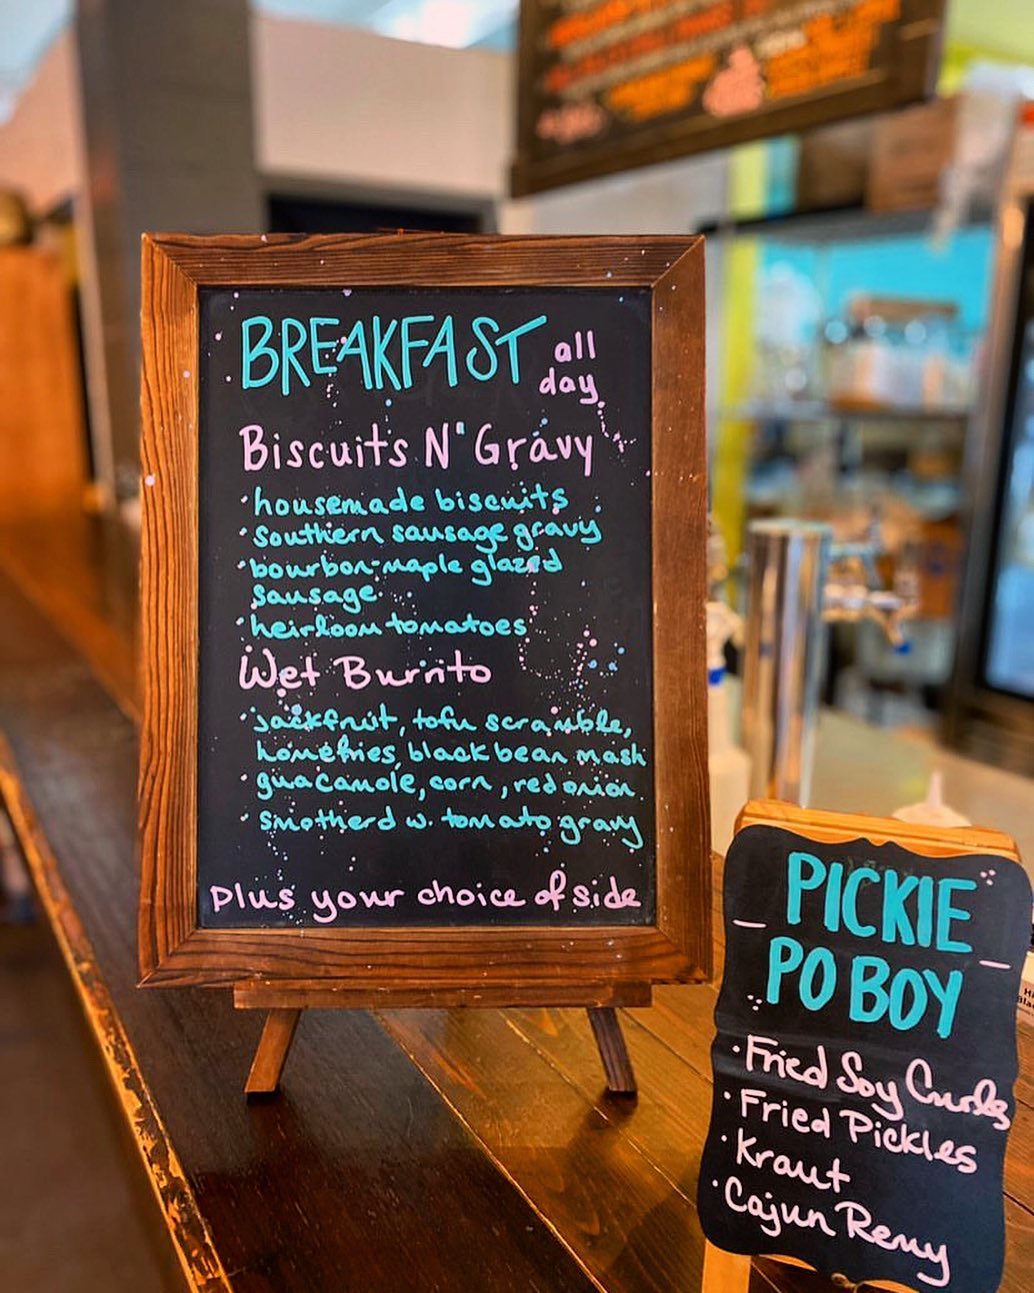 BREAKFAST all day
Biscuits N' Gravy
· housemade biscuits
· Southern sausage gravy
· bourbon-maple glazed
sausage
· heirloom tomatoes
Wet Burrito
· jackfruit, tofu scramble,
homefries, black bean mash
· guacamole, corn, red onion
· smotherd w. tomato gravy
Plus your choice of side
PICKIE
PO BOY
· Fried Soy Curls
· Fried Pickles
· Kraut
· Cajun Remy